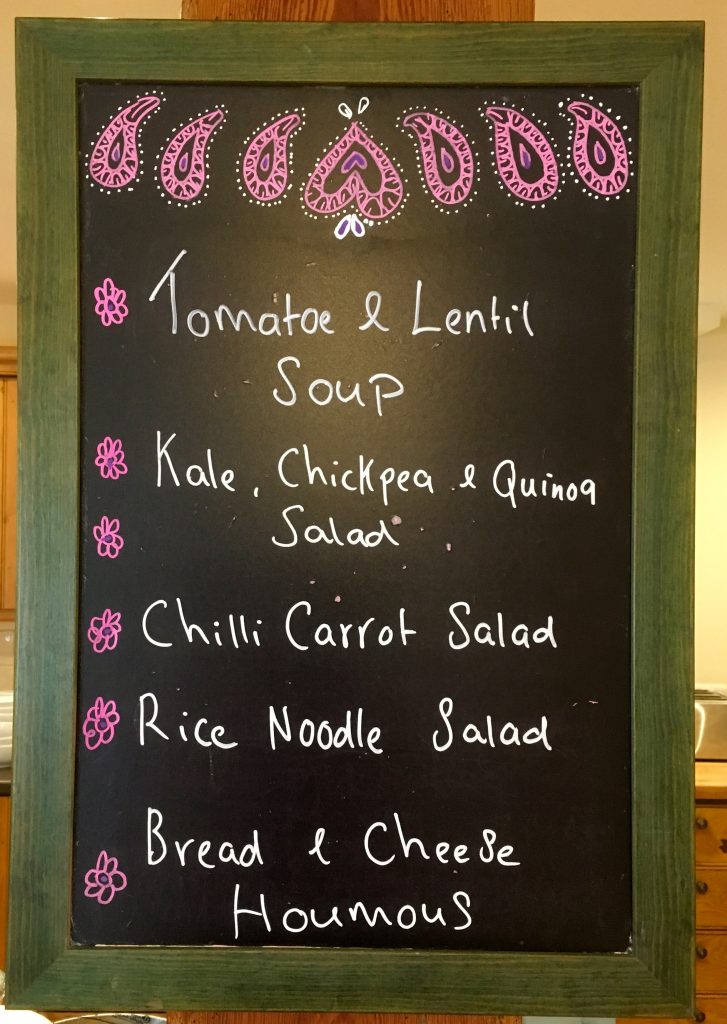 Tomatoe & Lentil
Soup
Kale, Chickpea & Quinoa
Salad
Chilli Carrot Salad
Rice Noodle Salad
Bread & Cheese
Houmous